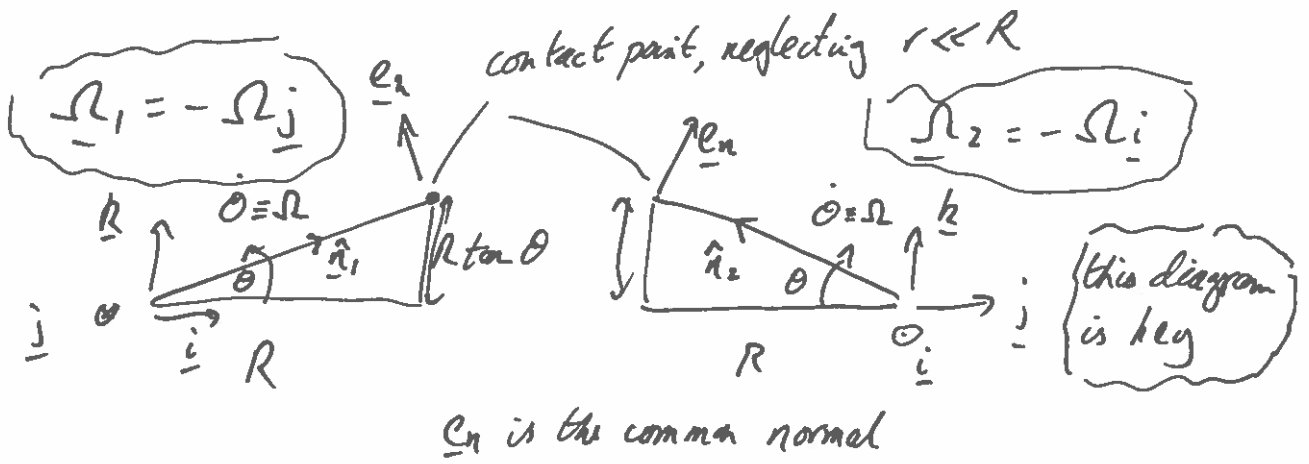 contact point, neglecting r << R
Ω₁ = - Ω j
e_n
e_n
Ω₂ = - Ω i
k
θ̇ ≡ Ω
n̂₁
θ
R tan θ
j
i
R
θ̇ ≡ Ω
k
n̂₂
θ
j
i
R
this diagram
is key
e_n is the common normal